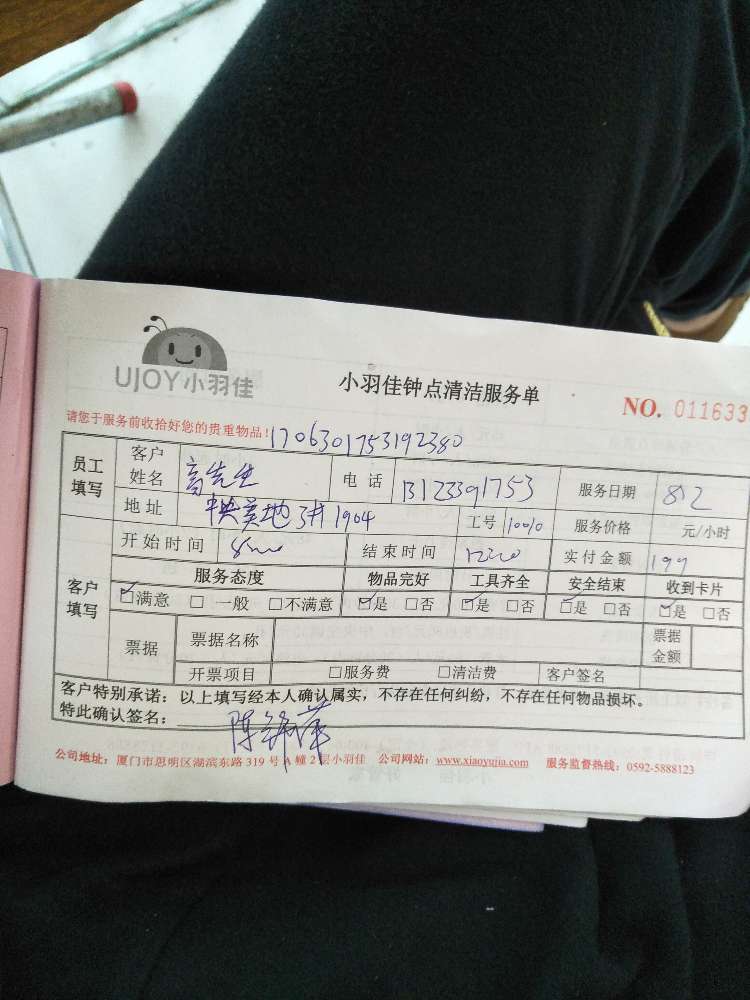 UJOY小羽佳
小羽佳钟点清洁服务单
NO. 011633
请您于服务前收拾好您的贵重物品! 1706301753192380
员工填写 客户姓名 高先生 电话 13123391753 服务日期 8.12
地址 中央美地3井1904 工号 10010 服务价格 元/小时
客户填写 开始时间 8:00 结束时间 12:00 实付金额 199
服务态度 物品完好 工具齐全 安全结束 收到卡片
☑满意 □一般 □不满意 ☑是 □否 ☑是 □否 ☑是 □否 ☑是 □否
票据 票据名称 票据金额
开票项目 □服务费 □清洁费 客户签名
客户特别承诺:以上填写经本人确认属实,不存在任何纠纷,不存在任何物品损坏。
特此确认签名: 陈锦萍
公司地址:厦门市思明区湖滨东路 319 号 A 幢 2 层小羽佳 公司网站:www.xiaoyujia.com 服务监督热线:0592-5888123